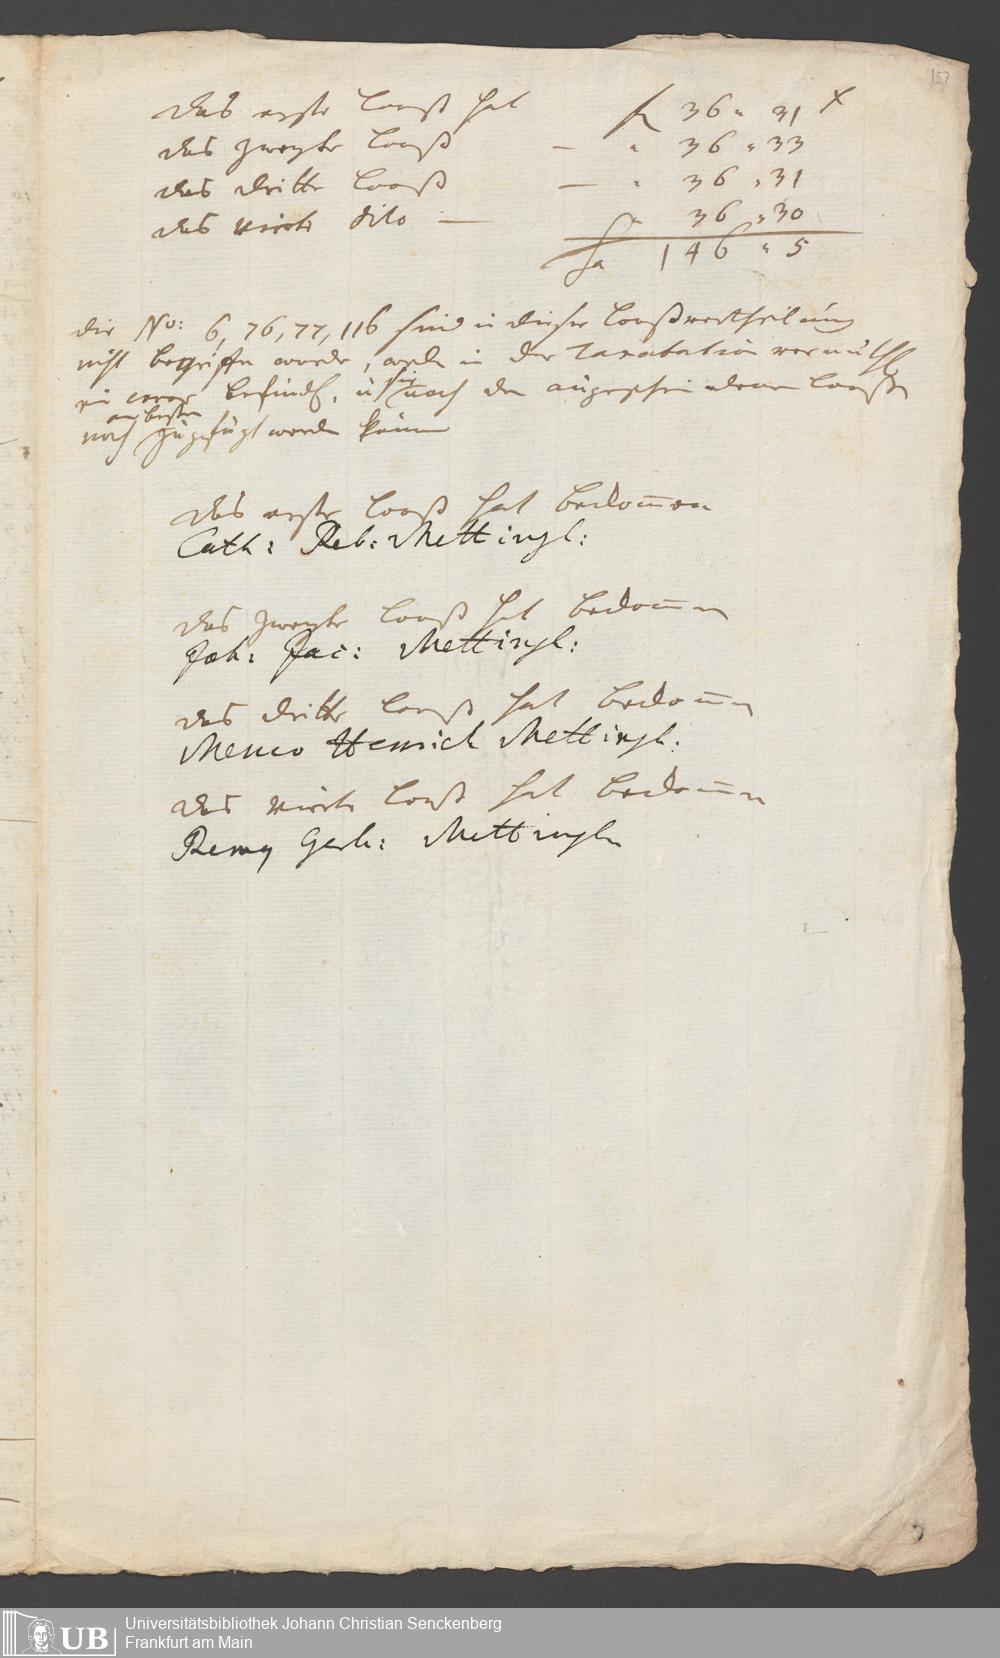 157
das erste Looß hat f 36 " 31 x
das zweyte Looß — " 36 " 33
das dritte Looß — " 36 " 31
das vierte dito — " 36 " 30
Sa 146 " 5
die No: 6, 76, 77, 116 sind in dieser Looßvertheilung
nicht begriffen worden, in der Taxatation
ein error befindt, u sie nach den Looßen
noch am besten zugefügt werden können
das erste Looß hat bekom̅en
Cath: Reb: Mettingh:
das zweyte Looß hat bekom̅en
Joh: Jac: Mettingh:
das dritte Looß hat bekom̅en
Menco Henrich Mettingh:
das vierte Looß hat bekom̅en
Remy Gerh: Mettingh
UB
Universitätsbibliothek Johann Christian Senckenberg
Frankfurt am Main